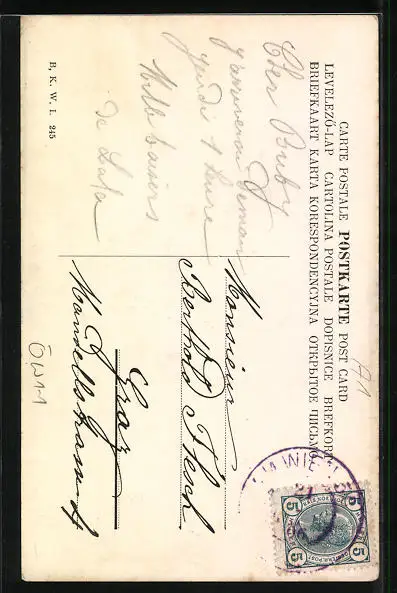 CARTE POSTALE POSTKARTE POST CARD
LEVELEZŐ-LAP CARTOLINA POSTALE DOPISNICE BREFKORT
BRIEFKAART KARTA KORESPONDENCYJNA ОТКРЫТОЕ ПИСЬМО
Cher Buby
J'arriverai demain
jeudi 1 heure
Mille baisers
de Lola
Monsieur
Berthold Flesch
Graz
Mandellstrasse
B. K. W. I. 245
A1
5 5
5 5
WIEN